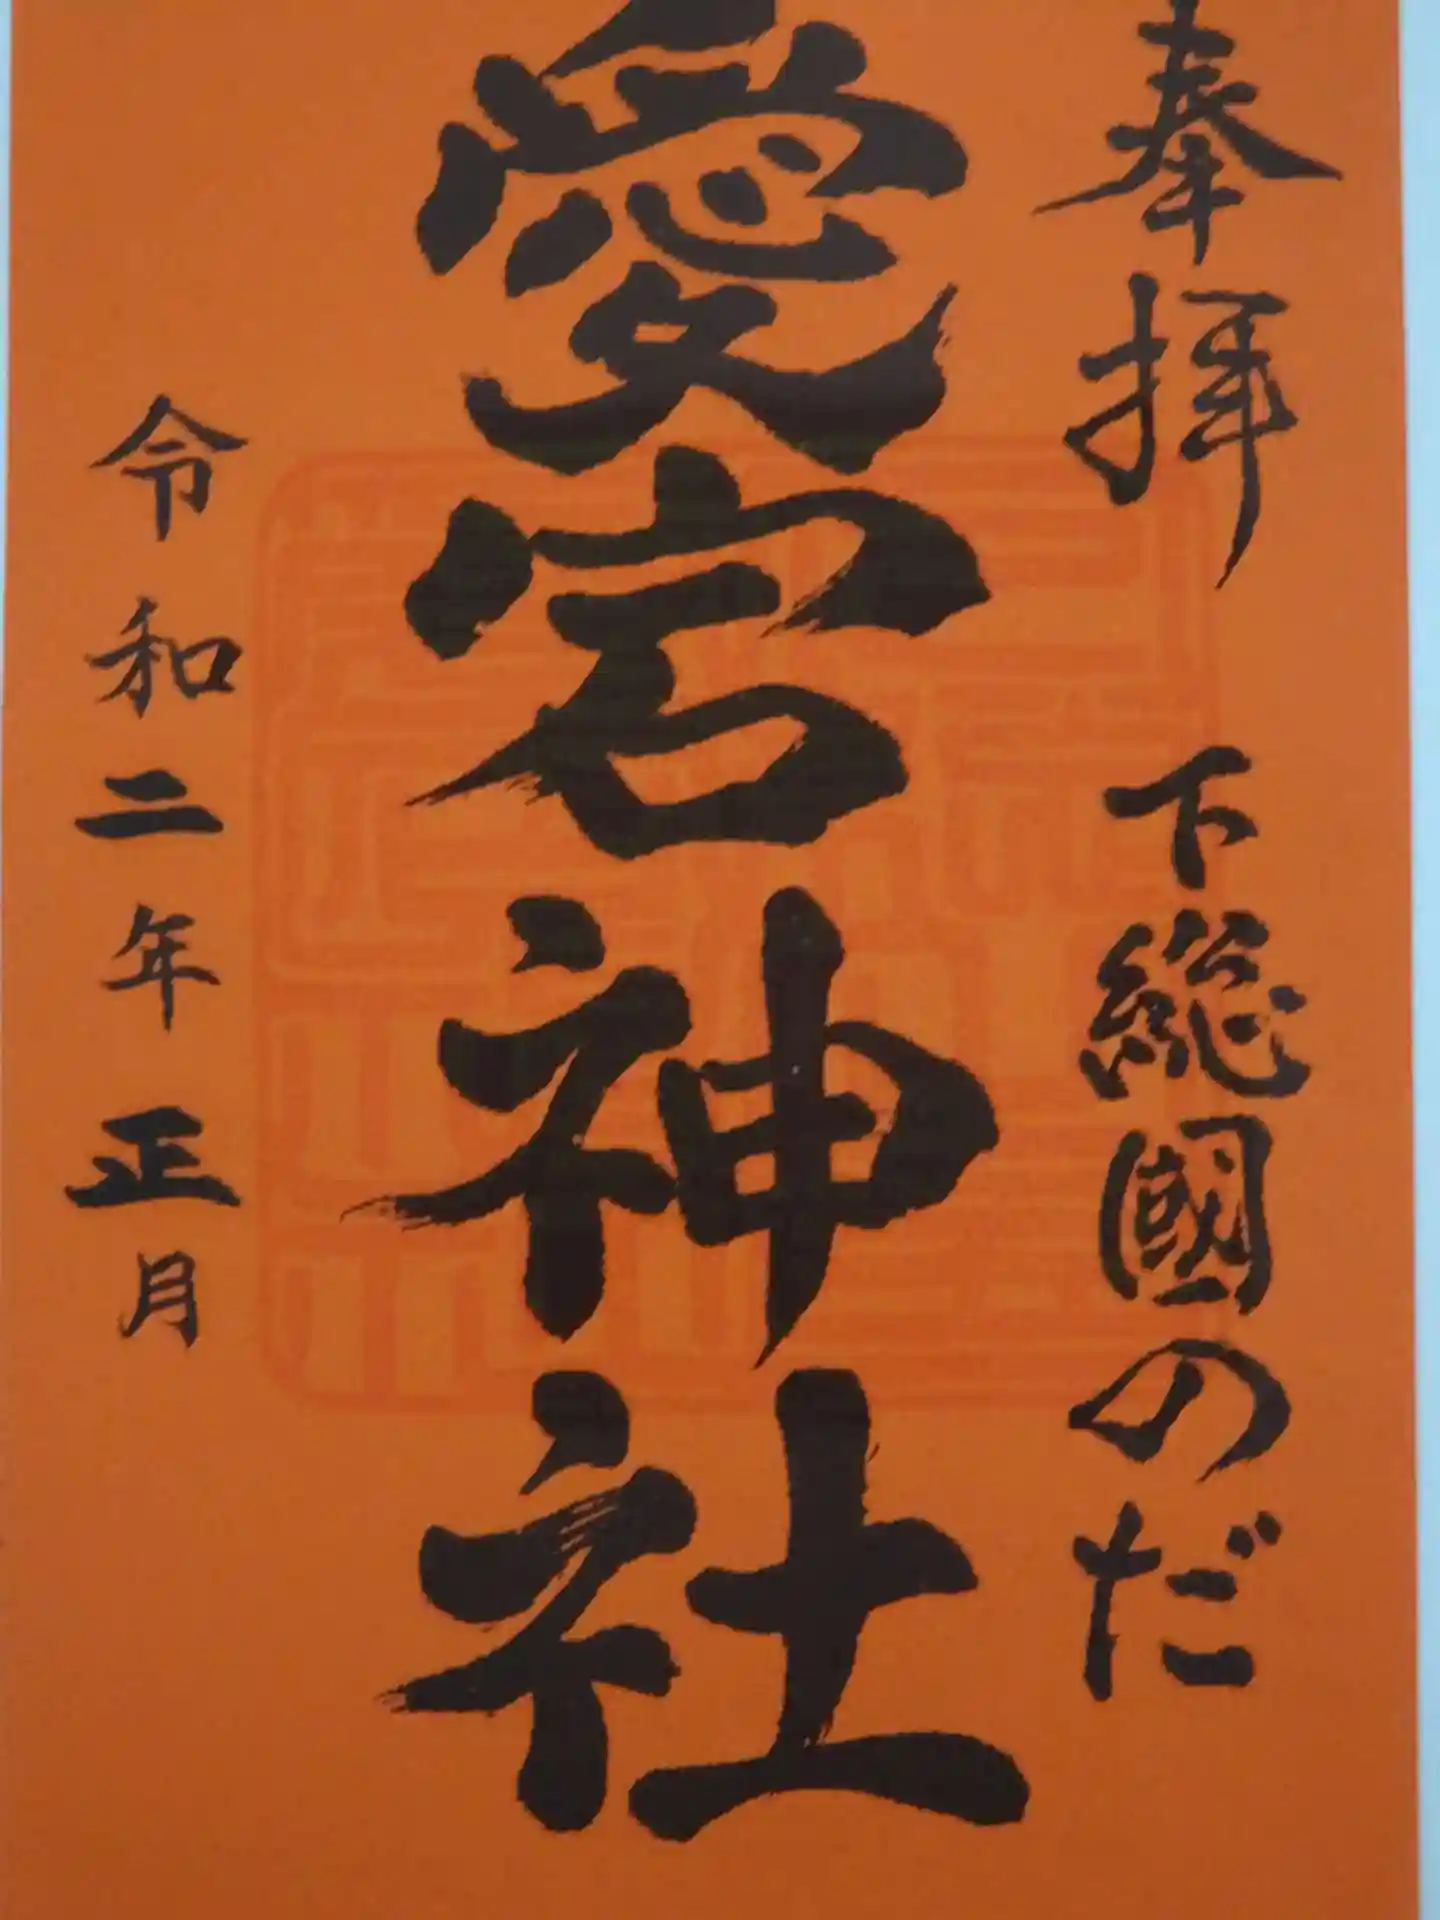 奉拝
下総國のだ
愛宕神社
令和二年正月